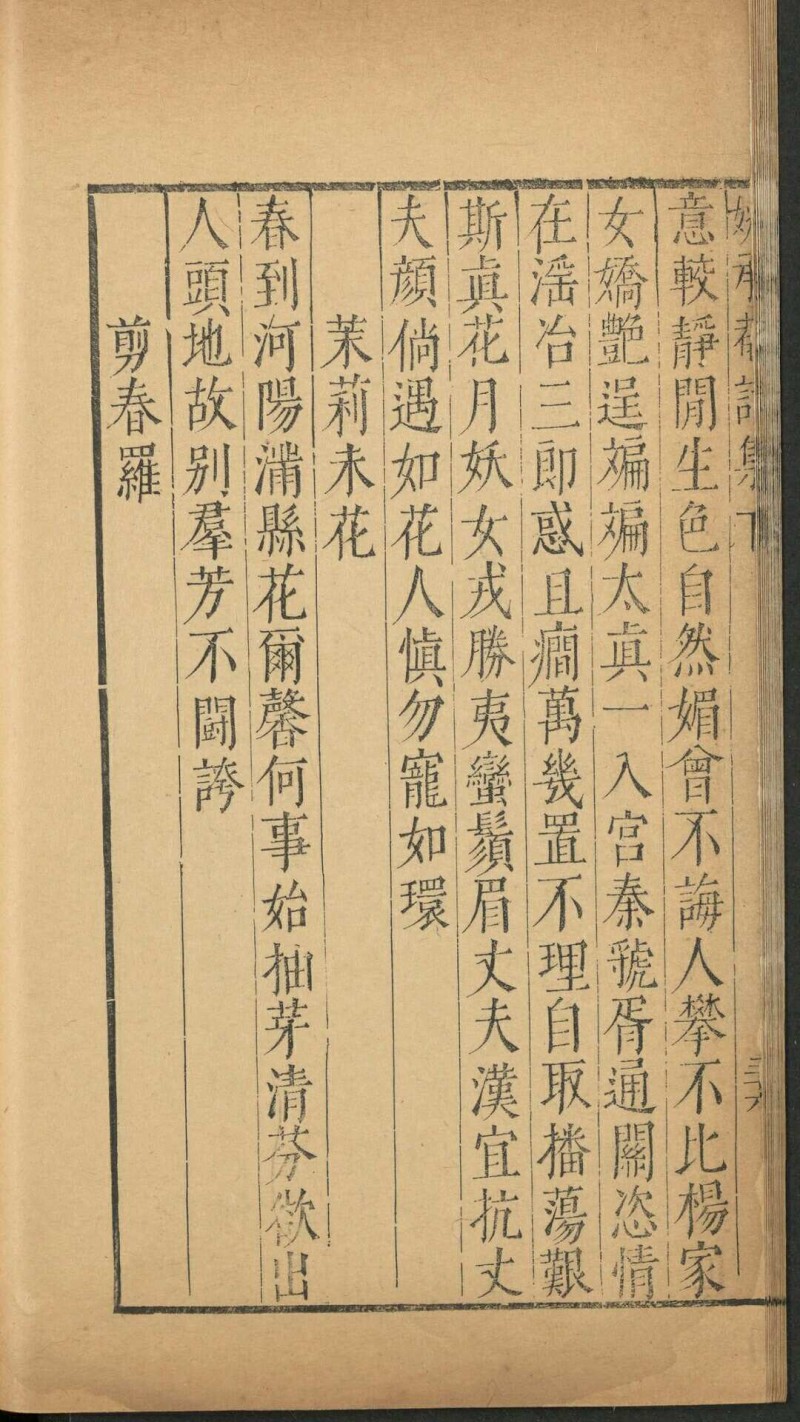 詩集下
意較靜閒生色自然媚曾不誨人攀不比楊家
女嬌艷逞斒斒太眞一入宮秦虢胥通關恣情
在滛冶三郎惑且癎萬幾置不理自取播蕩艱
斯眞花月妖女戎勝夷蠻鬚眉丈夫漢宜抗丈
夫顔倘遇如花人愼勿寵如環
茉莉未花
春到河陽滿縣花爾馨何事始抽芽清芬欲出
人頭地故别羣芳不鬪誇
剪春羅